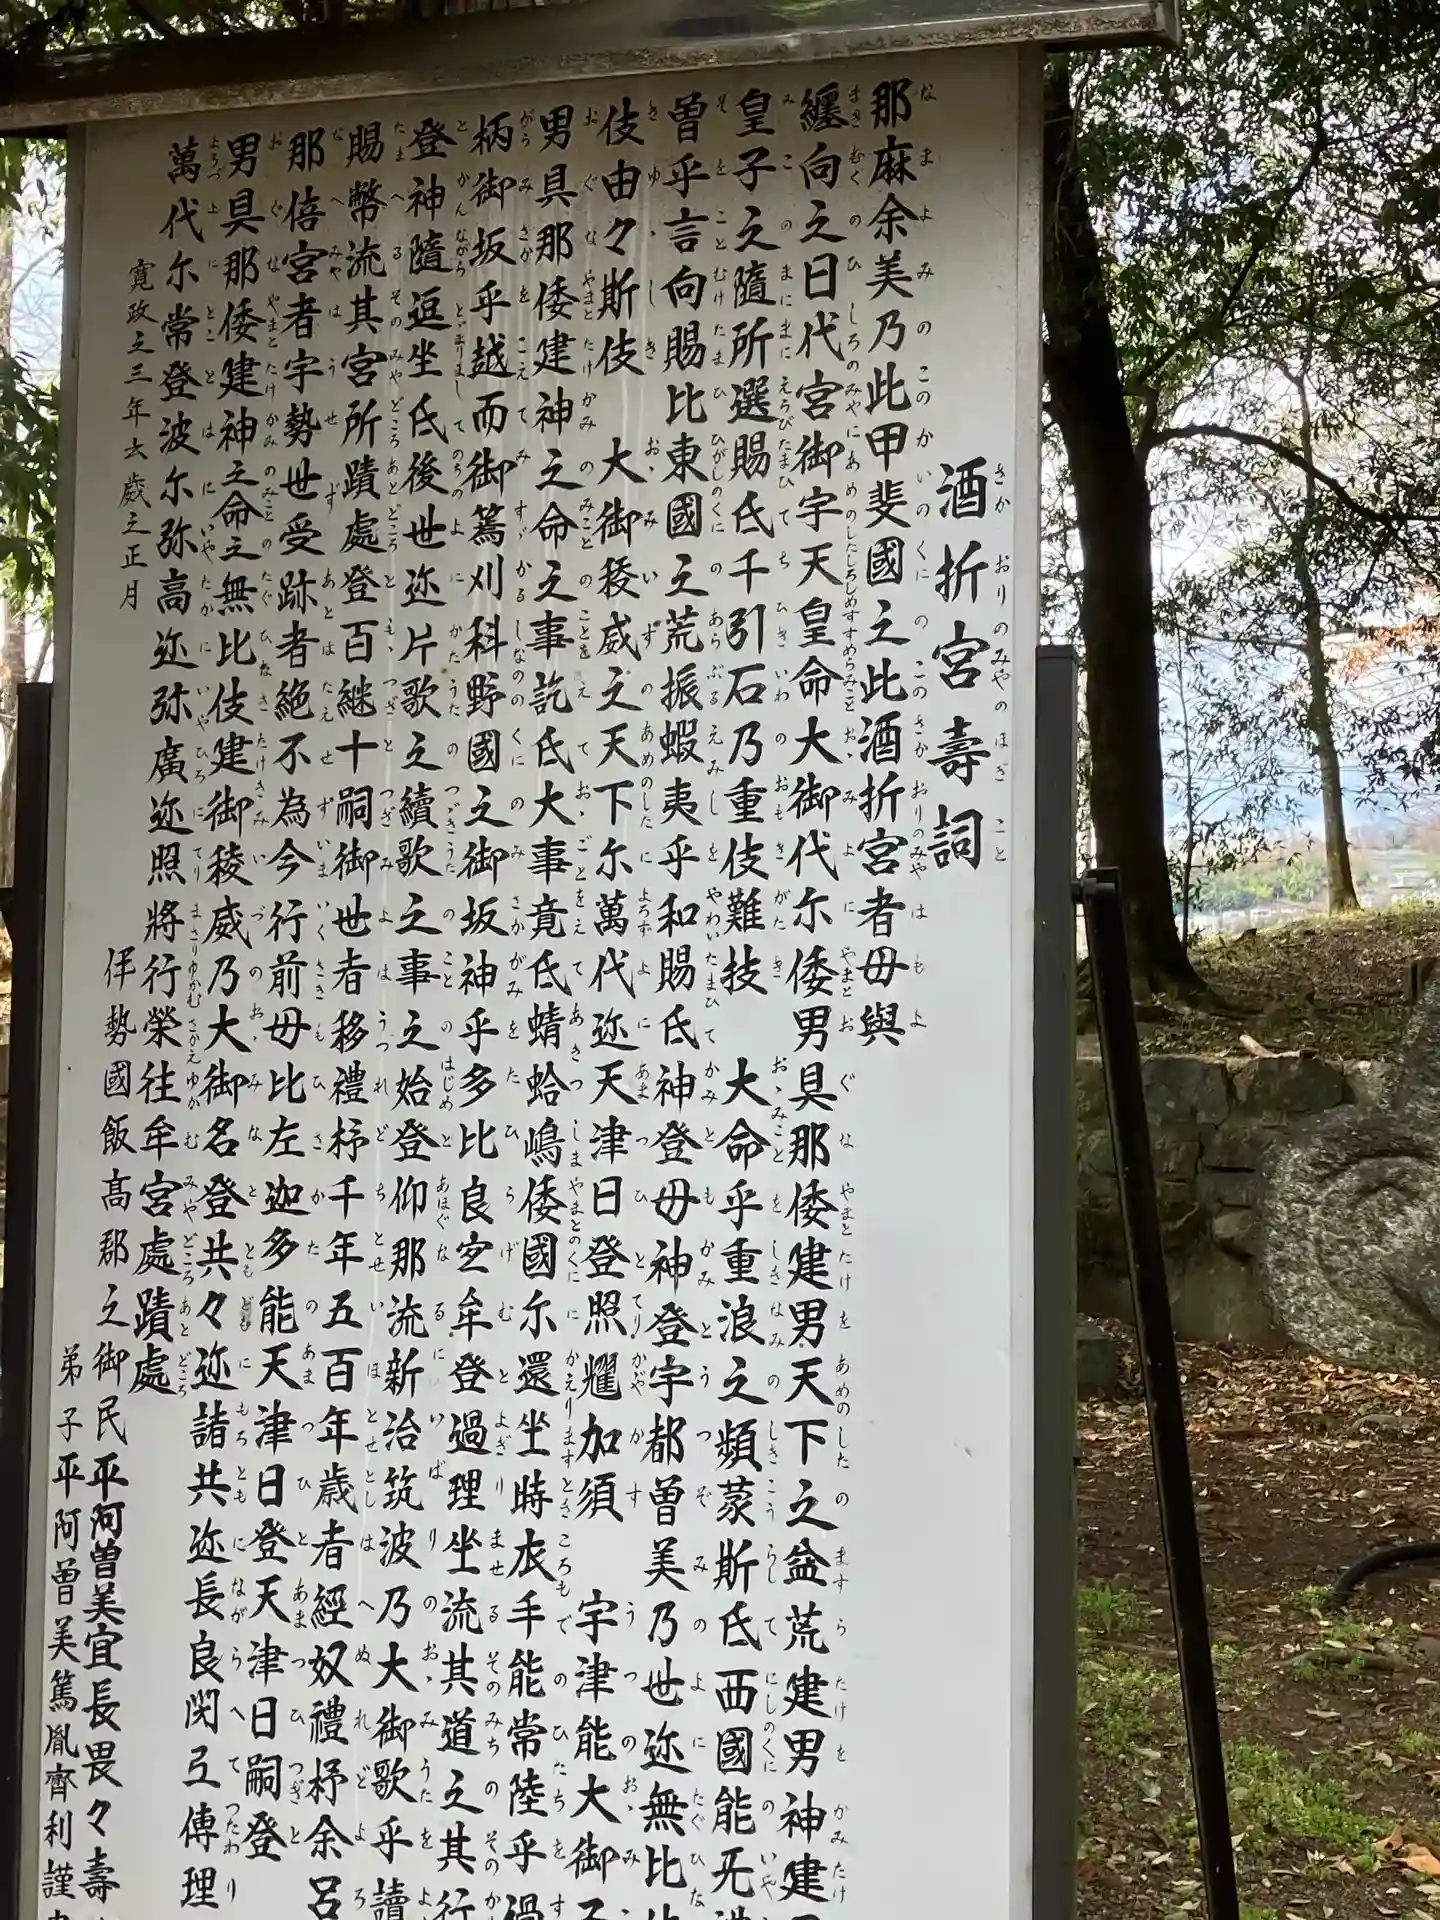 酒折宮壽詞
那麻余美乃此甲斐國之此酒折宮者毋與
纏向之日代宮御宇天皇命大御代尓倭男具那倭建男天下之益荒建男神建
皇子之隨所選賜氐千引石乃重伎難技 大命乎重浪之頻蒙斯氐西國能
曽乎言向賜比東國之荒振蝦夷乎和賜氐神登毋神登宇都曽美乃世迩無比
伎由々斯伎 大御稜威之天下尓萬代迩天津日登照耀加須 宇津能大御子
男具那倭建神之命之事訖氐大事竟氐蜻蛤嶋倭國尓還坐時衣手能常陸乎過
柄御坂乎越而御篶刈科野國之御坂神乎多比良宜牟登過理坐流其道之其行
登神隨逗坐氐後世迩片歌之續歌之事之始登仰那流新治筑波乃大御歌乎讀
賜幣流其宮所蹟處登百継十嗣御世者移禮杼千年五百年歳者經奴禮杼余呂
那倍宮者宇勢世受跡者絶不為今行前毋比左迦多能天津日登天津日嗣登
男具那倭建神之命之無比伎建御稜威乃大御名登共々迩諸共迩長良閇弖傳理
萬代尓常登波尓弥高迩弥廣迩照將行榮往牟宮處蹟處
寛政之三年云歳之正月
伊勢國飯高郡之御民平阿曽美宜長畏々壽
弟子平阿曽美篤胤齊利謹